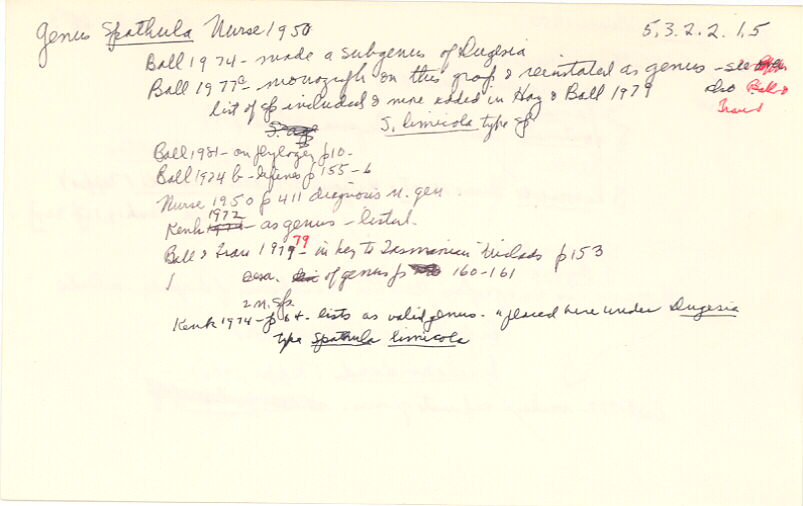 Genus Spathula Nurse 1950 5.3.2.2.1.5
Ball 1974 - made a subgenus of Dugesia
Ball 1977a - monograph on this group & reinstated as genus - see
list of sp included & nine added in Hay & Ball 1979 also Ball &
Tran
S. limicola type sp
Ball 1981 - on phylogeny p10-
Ball 1974b - defines p155-6
Nurse 1950 p411 diagnosis n. gen.
1972
Kenk - as genus - listed.
Ball & Tran 1979 79 - in key to Tasmanian triclads p153
of genus p 160-161
2 n. sps
Kenk 1974 - p lists as valid genus. "placed here under Dugesia
type Spathula limicola